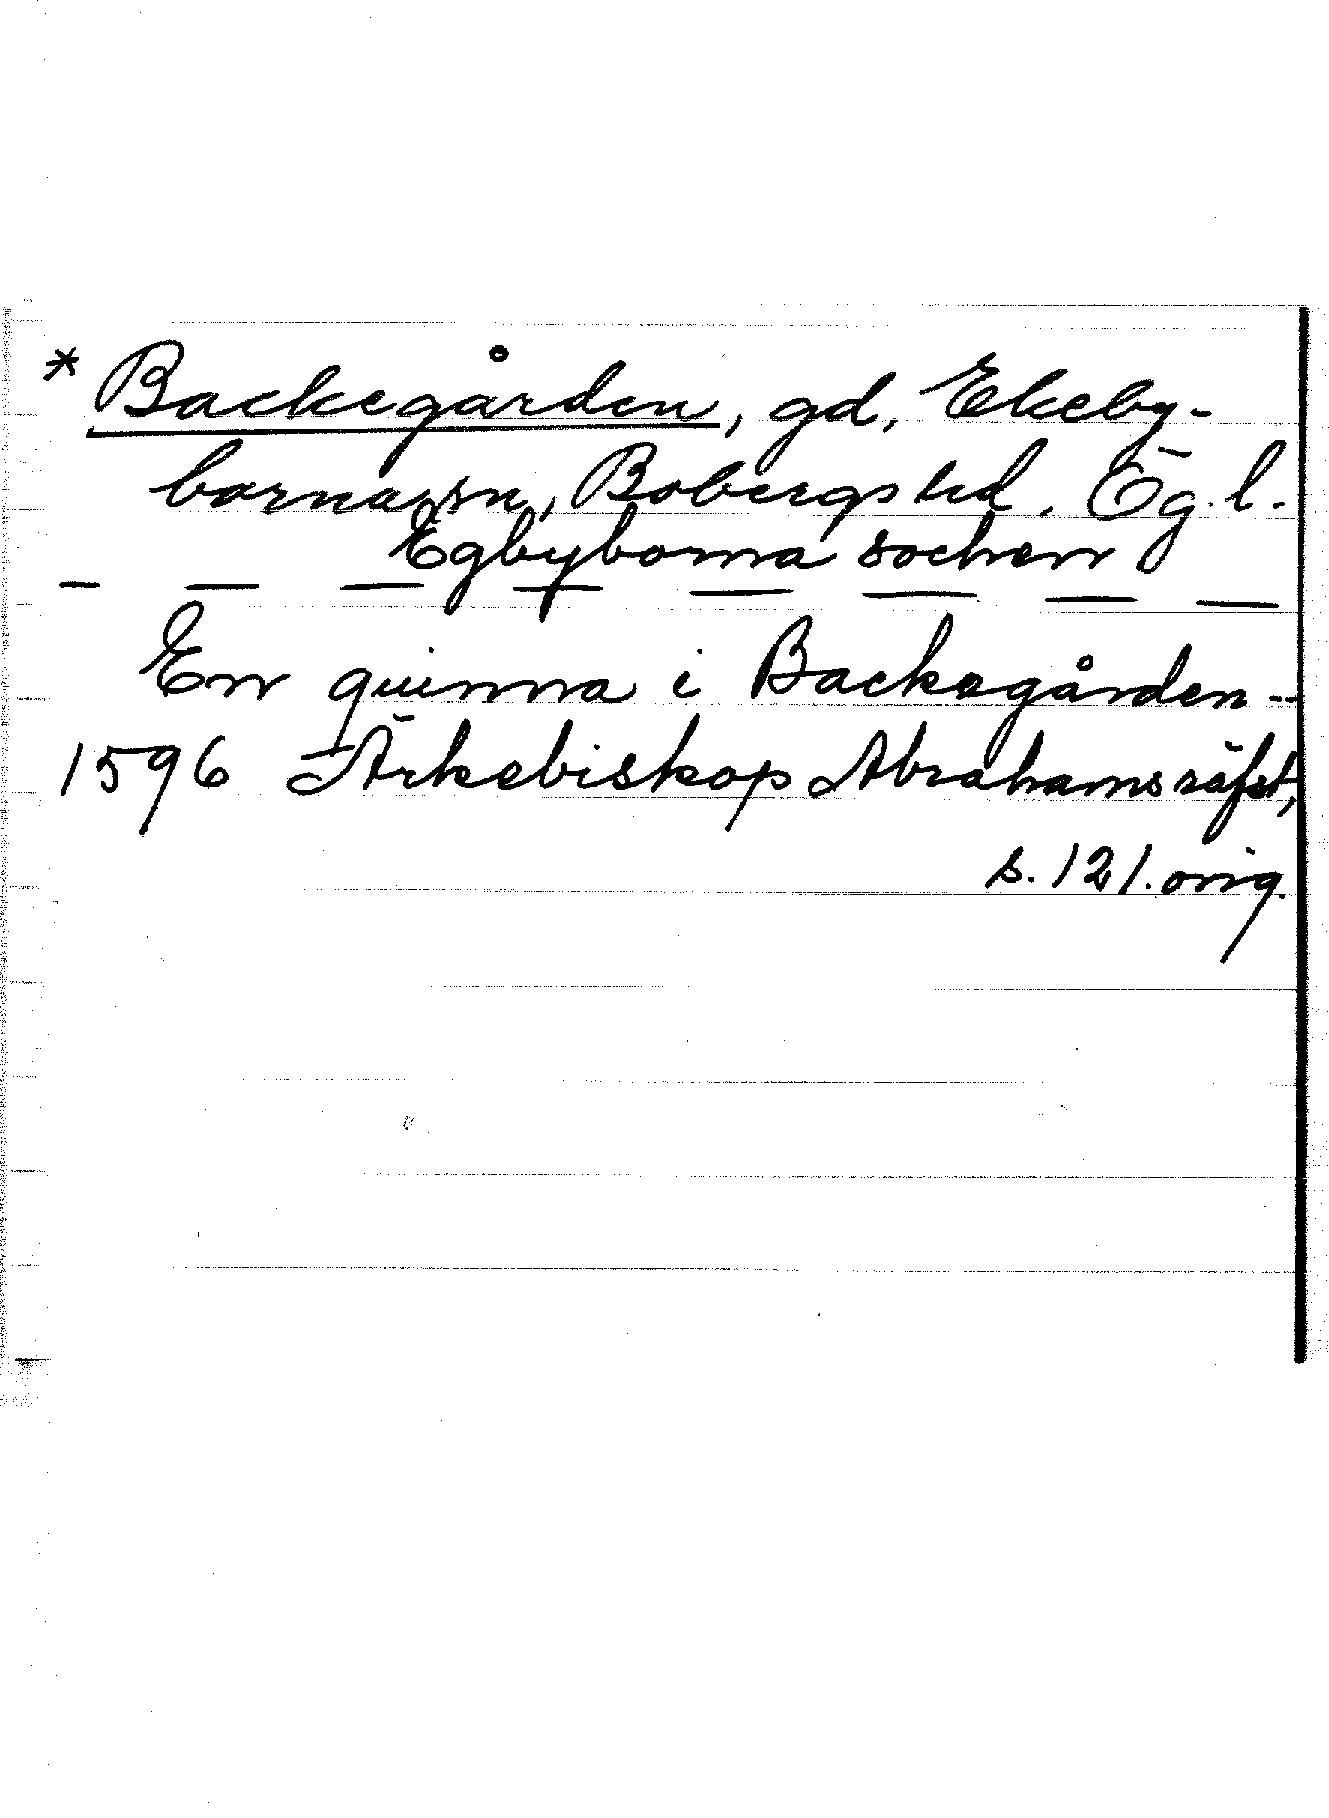 * Backegården, gd, Ekeby-
borna sn, Bobergs hd. Ög. l.
Egbyborna sochen
En quinna i Backegården --
1596 Ärkebiskop Abrahams räfst,
s. 121. orig.